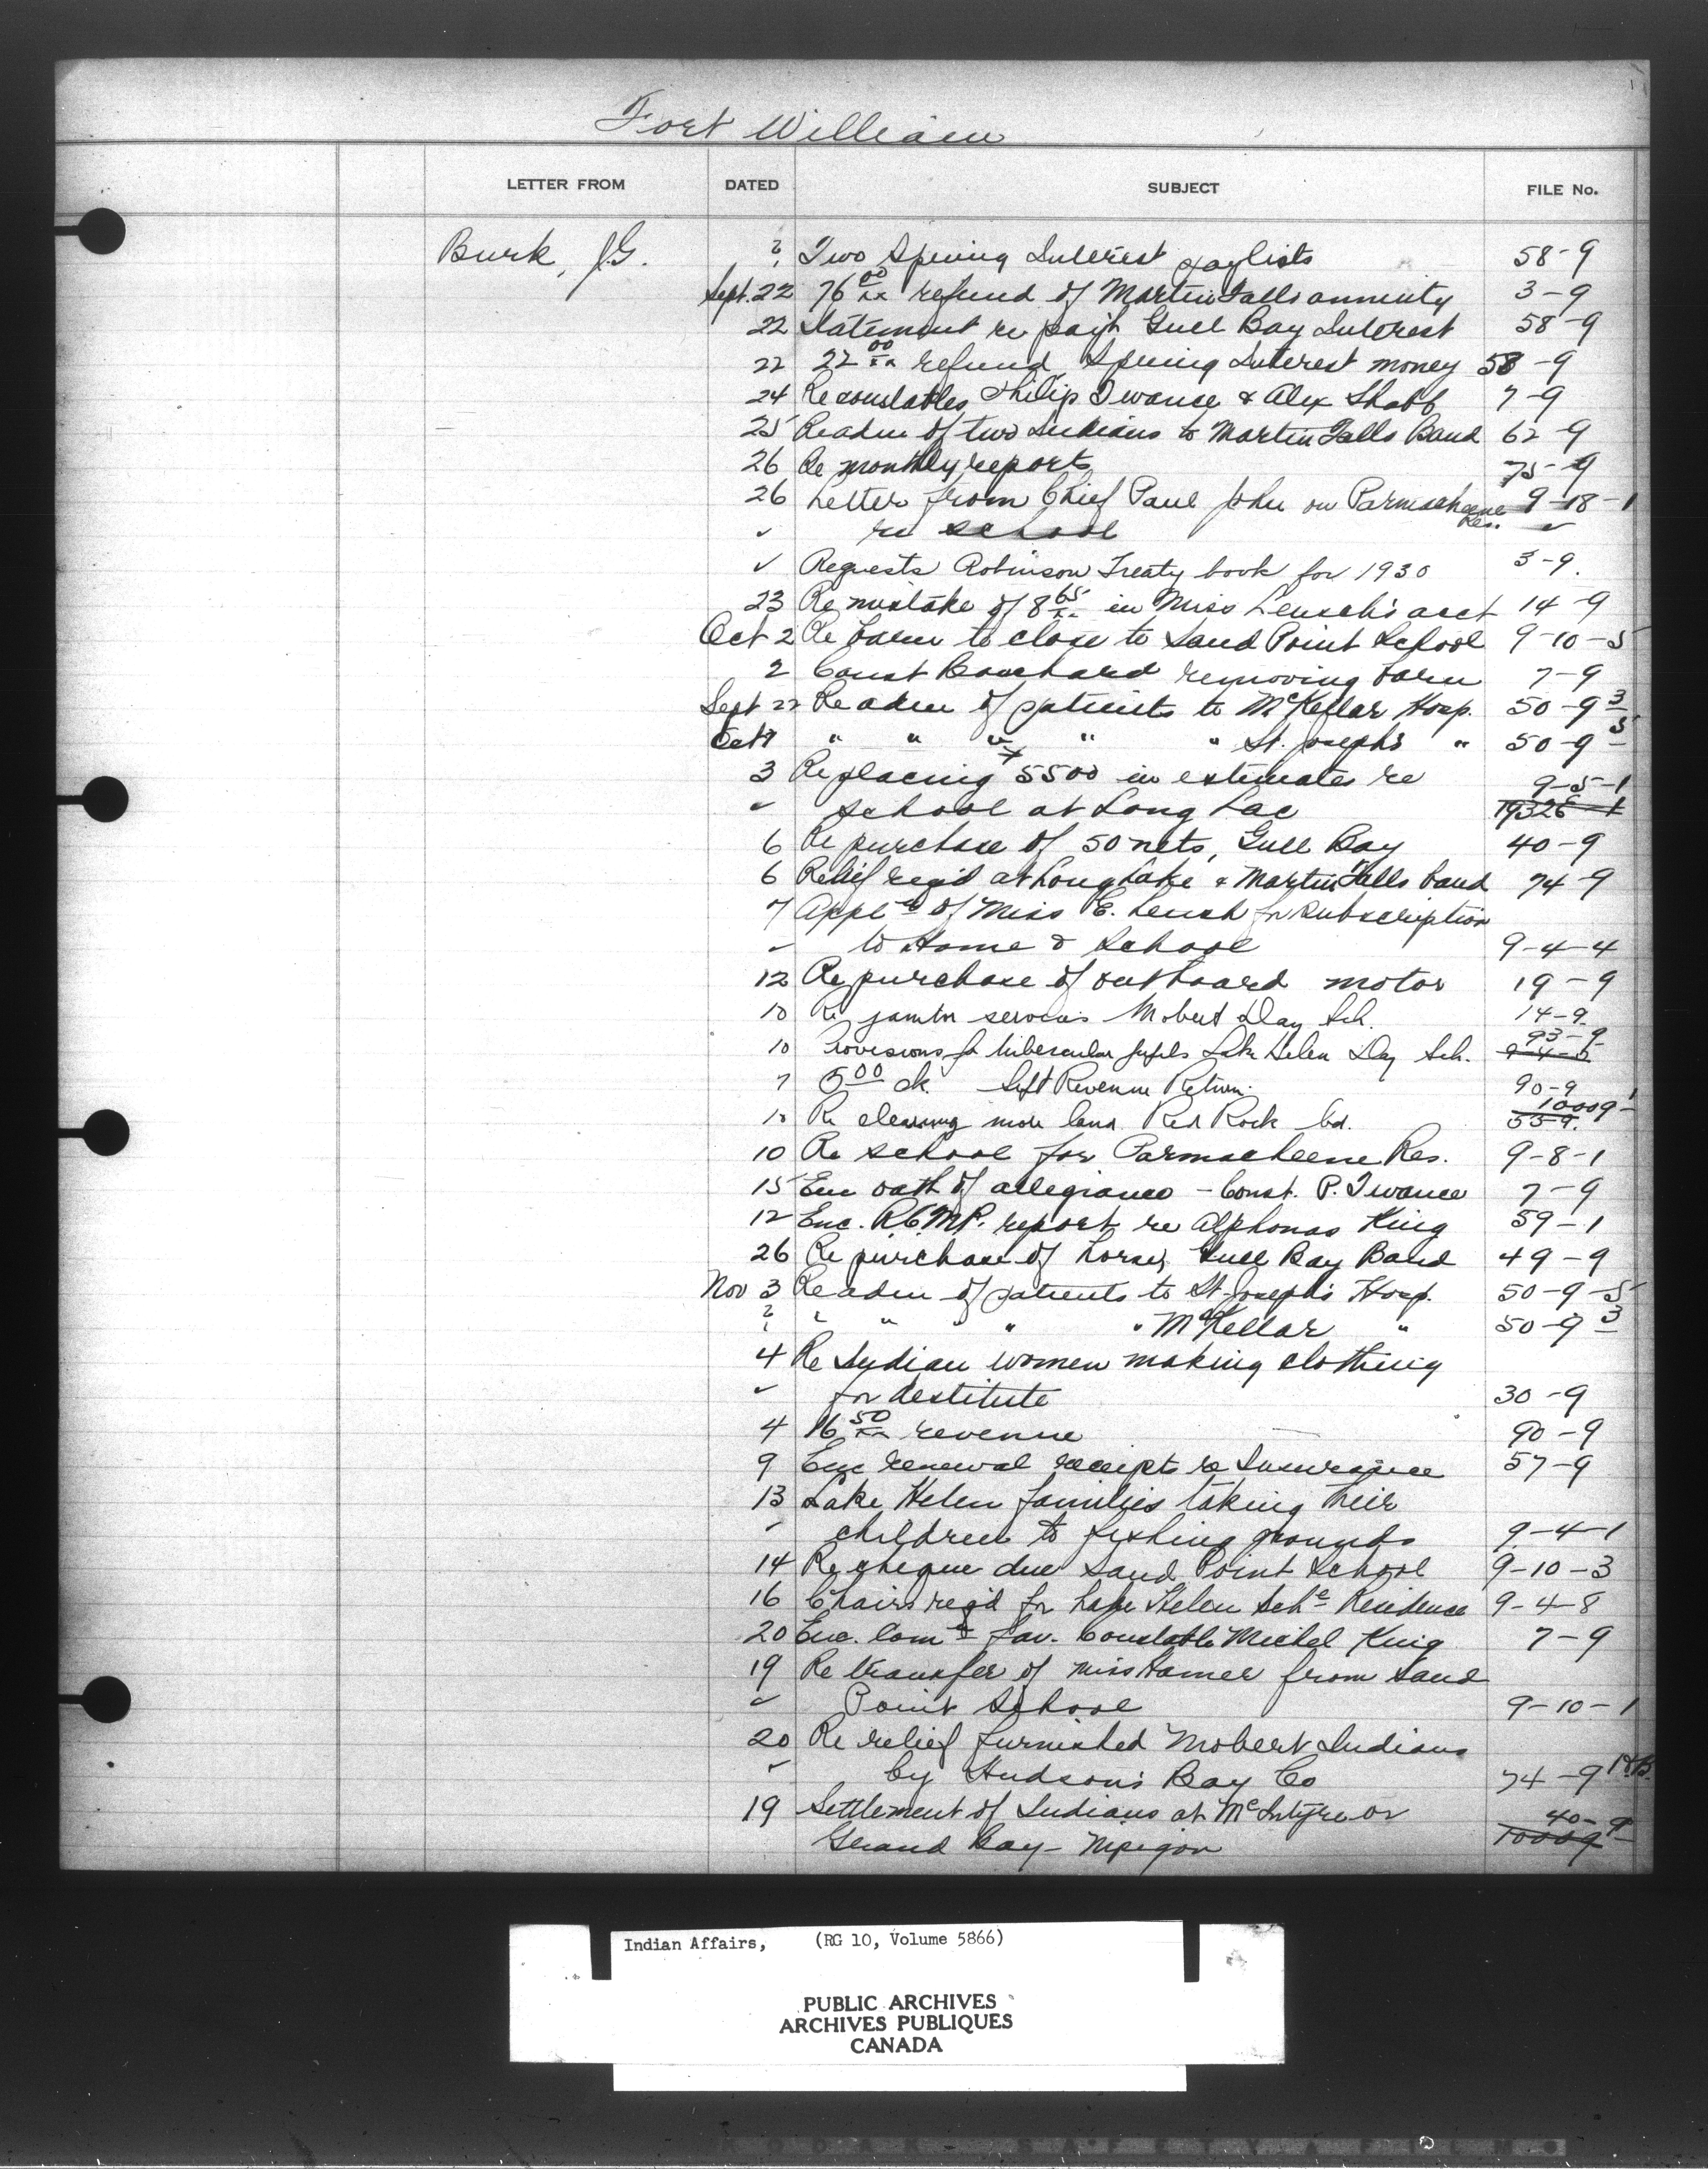 Fort William
LETTER FROM DATED SUBJECT FILE No.
Burk, J.G. ? Two Spring Interest paylists 58-9
Sept. 22 76 00/xx refund of Martin Falls annuity 3-9
22 Statement re pay't Gull Bay Interest 58-9
22 22 00/xx refund Spring Interest money 58-9
24 Re constables Philip Twance & Alex Shabb 7-9
25 Re adm of two Indians to Martin Falls Band 62-9
26 Re monthly reports 75-9
26 Letter from Chief Paul John on Parmacheene Res. 9-18-1
✓ re school ✓
✓ Requests Robinson Treaty book for 1930 3-9.
23 Re mistake of 8 65/xx in Miss Leusch's acct 14-9
Oct 2 Re barn to close to Sand Point School 9-10-5
2 Const Bouchard removing barn 7-9
Sept 22 Re adm of patients to McKellar Hosp. 50-9-3
Oct 1 " " " " " St. Josephs " 50-9-5
3 Re placing 5500 in estimates re 9-5-1
✓ school at Long Lac 19326-1
6 Re purchase of 50 nets, Gull Bay 40-9
6 Relief req'd at Long Lake & Martin Falls band 74-9
7 Appl'n of Miss E. Leusch for subscription
✓ to Home & School 9-4-4
12 Re purchase of outboard motor 19-9
10 Re janitor services Mobert Day Sch. 14-9
10 Provisions for tubercular pupils Lake Helen Day Sch. 93-9 9-4-5
7 5 00 ck. Sept Revenue Return. 90-9
10 Re clearing more land Red Rock bd. 10009-1 55-9.
10 Re school for Parmacheene Res. 9-8-1
15 Enc oath of allegiance - Const. P. Twance 7-9
12 Enc. R.C.M.P. report re Alphonas King 59-1
26 Re purchase of horses, Gull Bay Band 49-9
Nov 3 Re adm of patients to St. Joseph's Hosp. 50-9-5
? " " " " " McKellar " 50-9-3
4 Re Indian women making clothing
✓ for destitute 30-9
4 16 50/xx revenue 90-9
9 Enc renewal receipts re Insurance 57-9
13 Lake Helen families taking their
✓ children to fishing grounds 9-4-1
14 Re cheque due Sand Point School 9-10-3
16 Chairs req'd for Lake Helen Sch. Residence 9-4-8
20 Enc. Com'n fav. Constable Michel King 7-9
19 Re transfer of Miss Hamel from Sand
✓ Point School 9-10-1
20 Re relief furnished Mobert Indians
✓ by Hudson's Bay Co 74-9 H.B.
19 Settlement of Indians at McIntyre or 40-9
Grand Bay - Nipigon 10009
Indian Affairs, (RG 10, Volume 5866)
PUBLIC ARCHIVES
ARCHIVES PUBLIQUES
CANADA